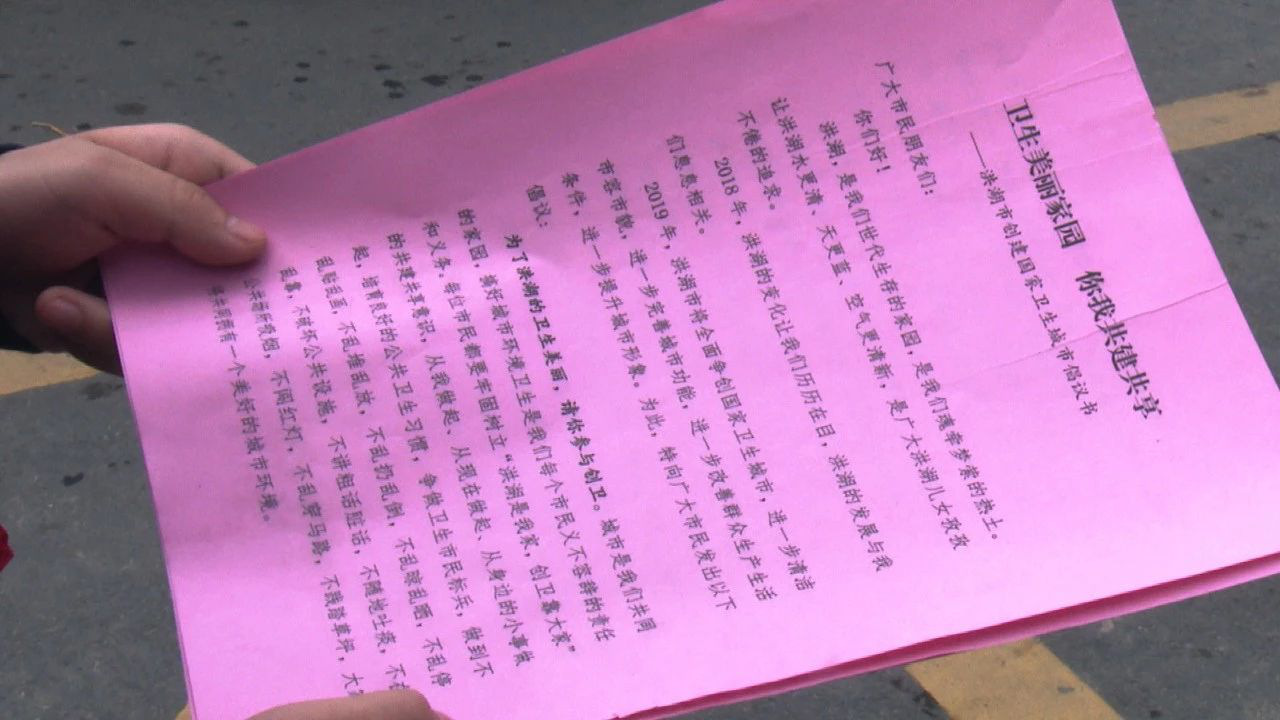 卫生美丽家园 你我共建共享
——洪湖市创建国家卫生城市倡议书
广大市民朋友们：
你们好！
洪湖，是我们世代生存的家园，是我们魂牵梦萦的热土。
让洪湖水更清、天更蓝、空气更清新，是广大洪湖儿女孜孜
不倦的追求。
2018 年，洪湖的变化让我们历历在目，洪湖的发展与我
们息息相关。
2019 年，洪湖市将全面争创国家卫生城市，进一步清洁
市容市貌，进一步完善城市功能，进一步改善群众生产生活
条件，进一步提升城市形象。为此，特向广大市民发出以下
倡议：
为了洪湖的卫生美丽，请你参与创卫。城市是我们共同
的家园，搞好城市环境卫生是我们每个市民义不容辞的责任
和义务。每位市民都要牢固树立“洪湖是我家，创卫靠大家”
的共建共享意识，从我做起、从现在做起、从身边的小事做
起，培育良好的公共卫生习惯，争做卫生市民标兵，做到不
乱贴乱画，不乱堆乱放，不乱扔乱倒，不乱晾乱晒，不乱停
乱靠，不破坏公共设施，不讲粗话脏话，不随地吐痰，不在
公共场所吸烟，不闯红灯，不乱穿马路，不践踏草坪，大家
共同拥有一个美好的城市环境。